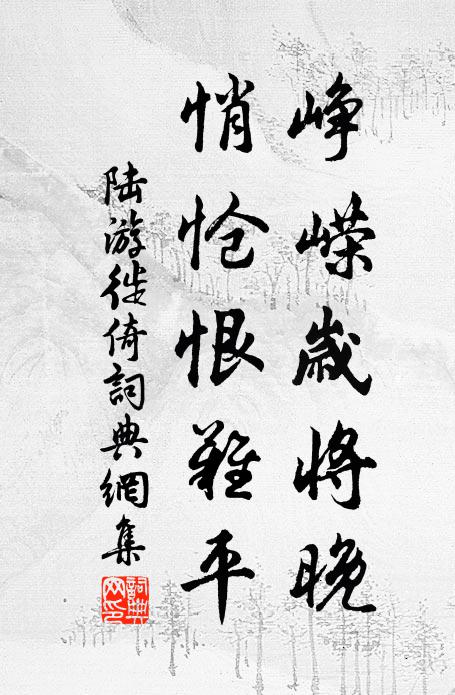 峥嵘岁将晚
悄怆恨难平
陆游徙倚詞典網集
詞典